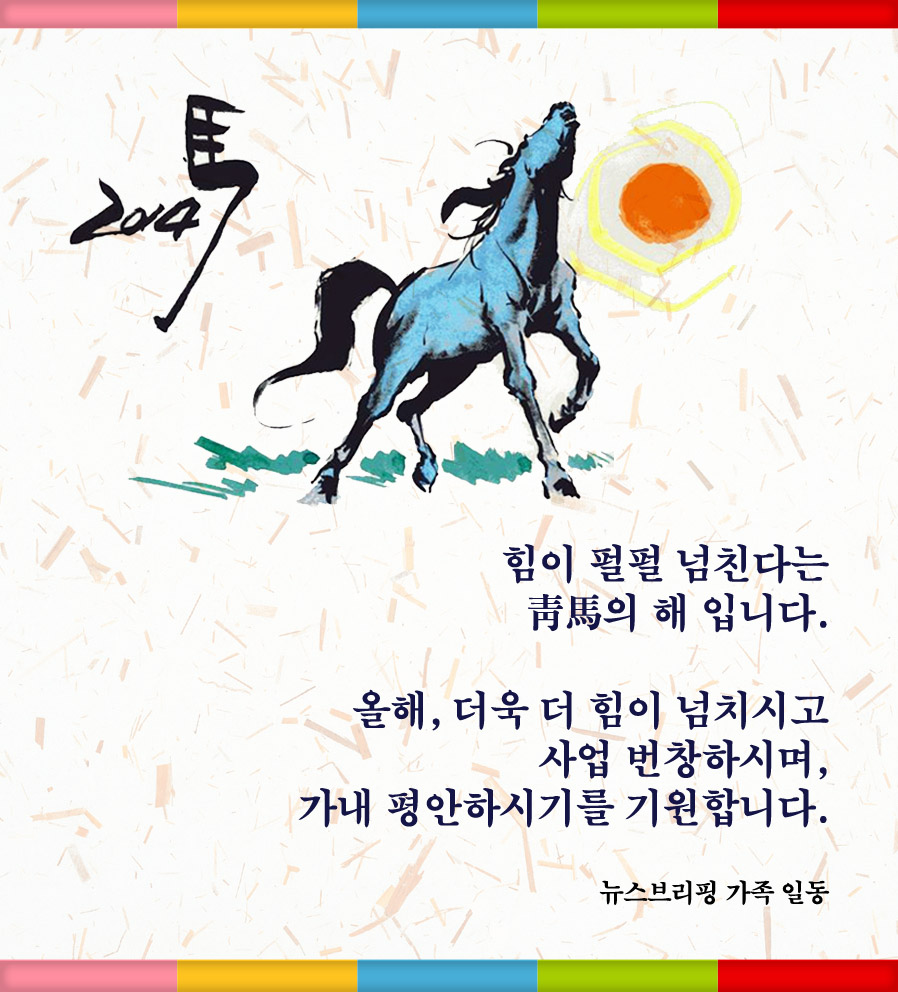 馬
2014
힘이 펄펄 넘친다는
靑馬의 해 입니다.
올해, 더욱 더 힘이 넘치시고
사업 번창하시며,
가내 평안하시기를 기원합니다.
뉴스브리핑 가족 일동